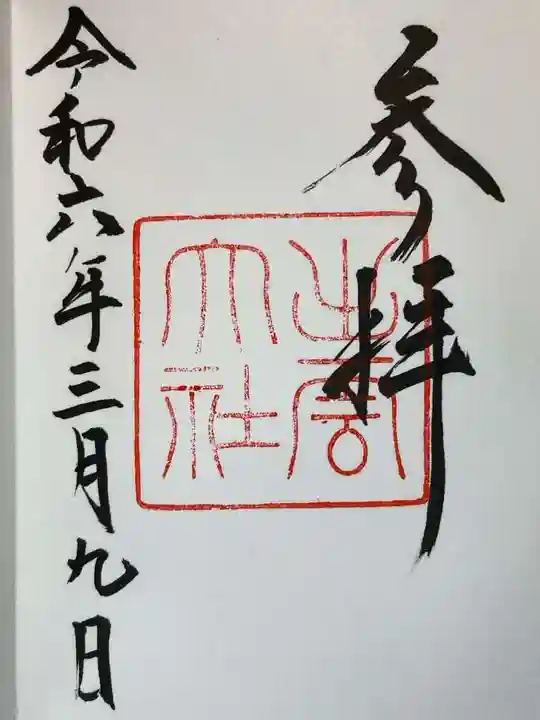 参拝
出雲
大社
令和六年三月九日